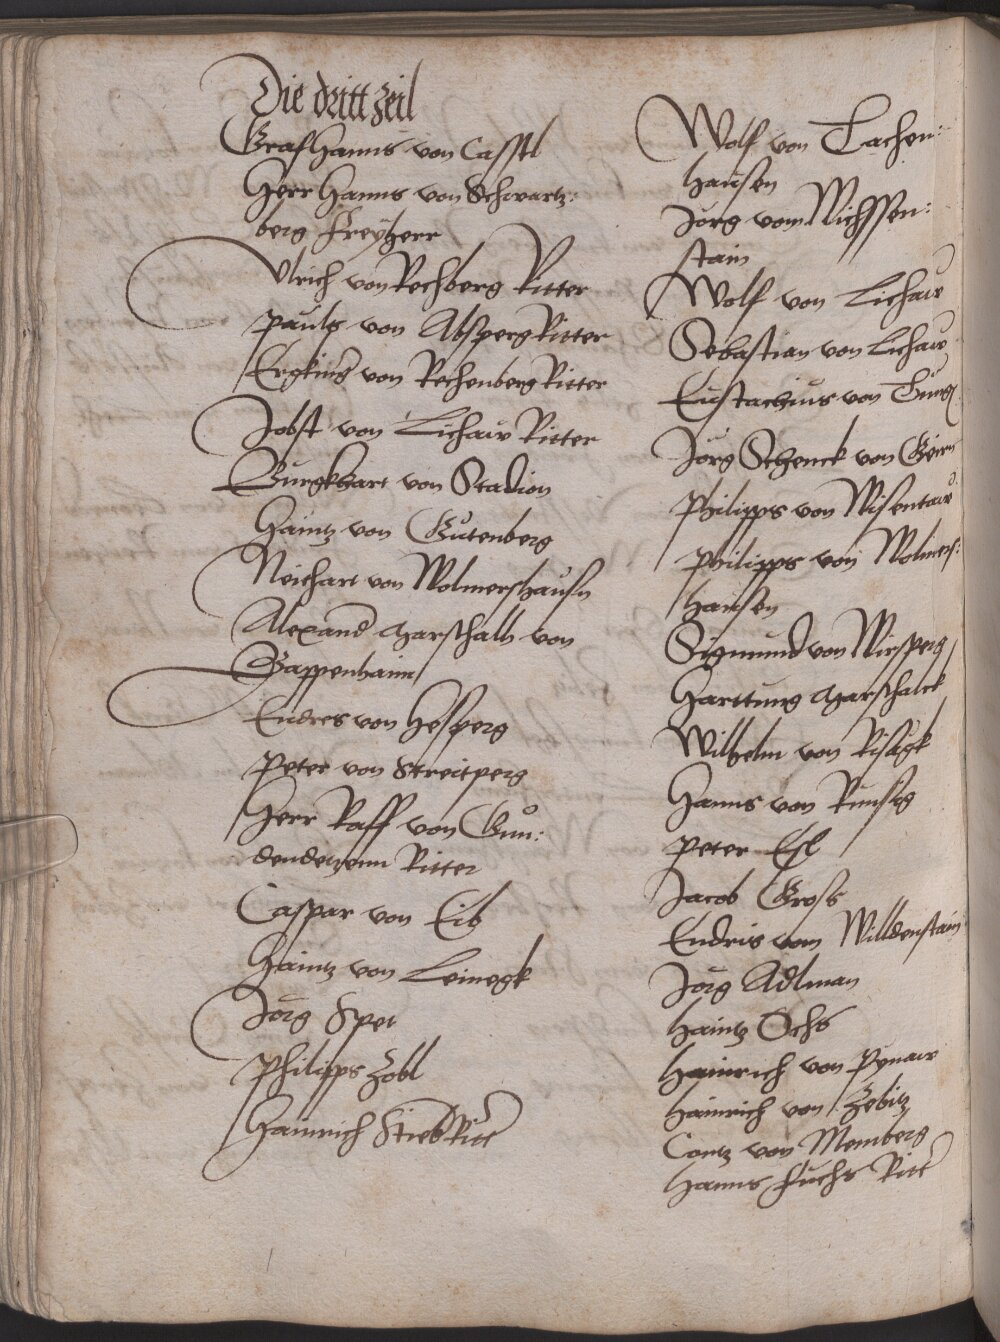 Die dritt Zeil
Graf Hanns von Casstl
Herr Hanns von Schwartz:
berg Freyherr
Ulrich von Rechberg Ritter
Pauls von Absperg Ritter
Ergking von Rechenberg Ritter
Jobst von Lichaw Ritter
Burgkhart von Stadion
Haintz von Gutenberg
Neithart von Wolmershausn
Alexand Marschalh von
Bappenhaim
Endres von Hesperg
Peter von Streitperg
Herr Raff von Gun:
dendetzenn Ritter
Caspar von Eib
Haintz von Leinegk
Jörg Spet
Philipps Zobl
Hainrich Stieb Ritt
Wolf von Tachen:
hausen
Jörg vom Wichssen:
stain
Wolf von Lichaw
Sebastian von Lichaw
Eustachius von Tung
Jörg Schenck von Geirn
Philipps von Wisentaw
Philipps von Wolmers:
hausen
Sigmund von Wirsperg
Harttung Marschalck
Wilhelm von
Hanns von
Peter Esl
Jacob Gross
Endris vom Willdenstain
Jörg Adlman
Haintz Ochs
Hainrich von Pynaw
Hainrich von Zebitz
Contz von Memberg
Hanns Fuchs Ritt